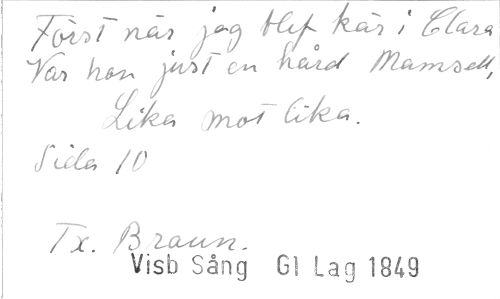 Först när jag blef kär i Clara
Var hon just en hård Mamsell,
Lika mot lika.
Sida 10
Tx. Braun.
Visb Sång Gl Lag 1849